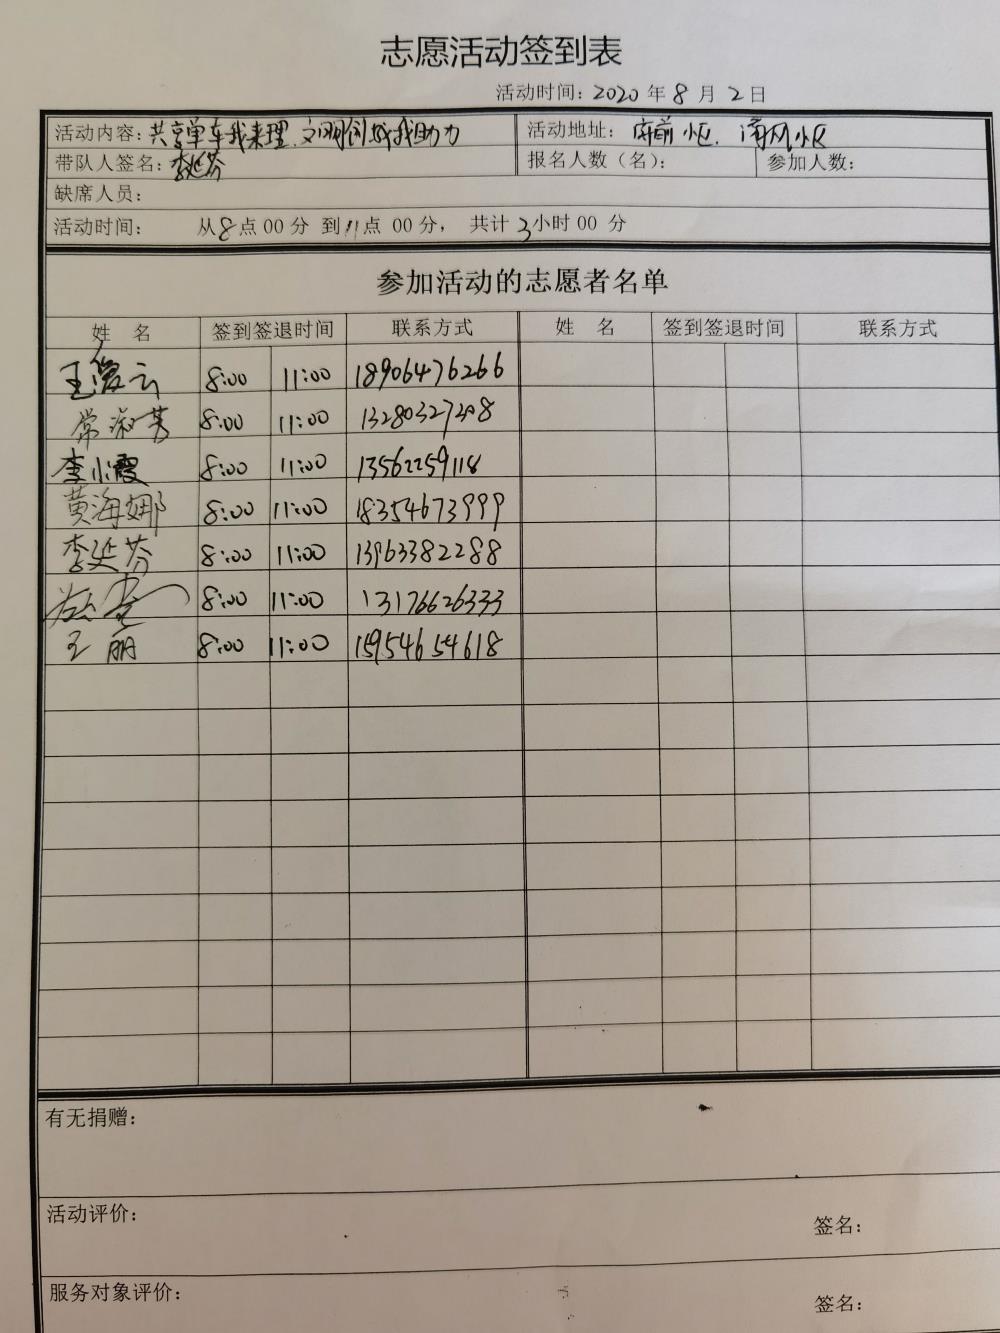 志愿活动签到表
活动时间：2020 年 8 月 2 日
活动内容：共享单车我来理，文明创城我助力 活动地址：府前小区，清风小区
带队人签名：李延芬 报名人数（名）： 参加人数：
缺席人员：
活动时间： 从8点00分 到11点 00分， 共计3小时00 分
参加活动的志愿者名单
姓 名 签到签退时间 联系方式 姓 名 签到签退时间 联系方式
王俊云 8:00 11:00 18906476266
常淑芳 8:00 11:00 13280327208
李小霞 8:00 11:00 13562259118
黄海娜 8:00 11:00 18354673999
李延芬 8:00 11:00 13963382288
8:00 11:00 13176626333
王丽 8:00 11:00 15954654618
有无捐赠：
活动评价：
签名：
服务对象评价：
签名：